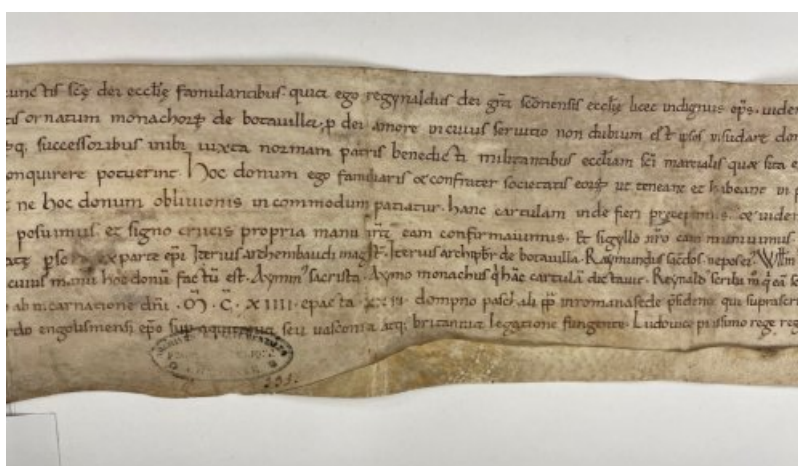 cunctis scę dei ecclię famulantibus. quia ego regynaldus dei gr̄a sc̄onensis ecclię licet indignus ep̄s. uiden
ornatum monachorꝝ de botauilla, p dei amore in cuius seruitio non dubium est ipsos insudare don
q; successoribus inibi iuxta normam patris benedicti militantibus ecclīam sc̄i marcialis quæ sita e
onquirere potuerint. hoc donum ego familiaris et confrater societatis eorꝝ ut teneant et habeant in p
ne hoc donum obliuionis incommodum patiatur. hanc cartulam inde fieri precepimus. et uiden
posuimus. et signo crucis propria manu nr̄a eam confirmauimus. Et sigyllo nr̄o eam muniuimus.
ex parte ep̄i Iterius archembaudi mag̃st. Iterius archipbr̄ de botauilla. Raymundus sac̃dos nepos ei᷒. Will̃m
cuius manu hoc donũ factũ est. Aymin᷒ sacrista. Aymo monachus q̃ hãc cartulã dictauit. Reynald᷒ scriba m̃ q̃ eã sc
ab incarnatione dñi. M̃. C̃. XIIII. epacta XXII. dompno paschali p̄p in romana sede p̃sidente. qui suprascri
rdo engolismensi ep̄o sup aquitania seu uasconia atq; britannia legatione fungente. Ludouico piissimo rege reg